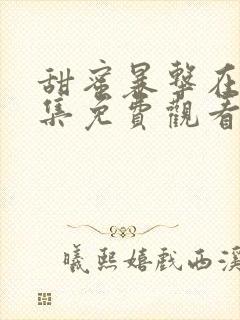 甜蜜暴擊在
集免費觀看
曦熙嬉戲西溪